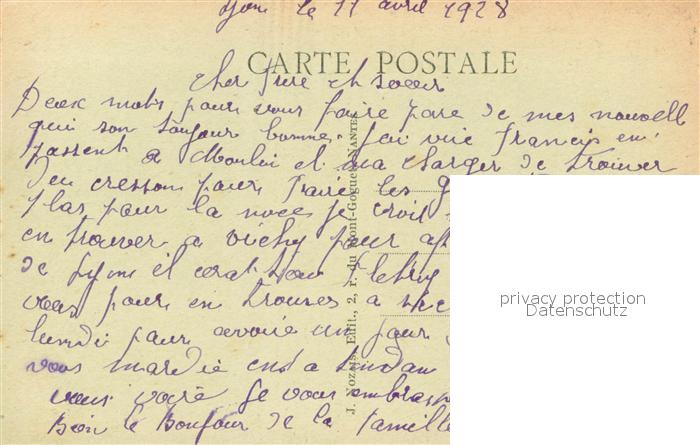 le 11 avril 1928
CARTE POSTALE
cher frere et soeur
Deux mots pour vous faire pare de mes nouvell
qui son toujour bonne. J'ai vue Francis en
passent a Moulin et ma charger de trouver
du cresson pour faire les
plas pour la noce je croit
en trouver a vichy pour
de Lyon il
vous pour en trouver a
lundi pour avoire un jour
vous mardie
vous voire je vous embrass
Bien le Bonjour de la famille
J. Nozais, Edit., 2, r. du Mont-Goguet, NANTES
privacy protection
Datenschutz